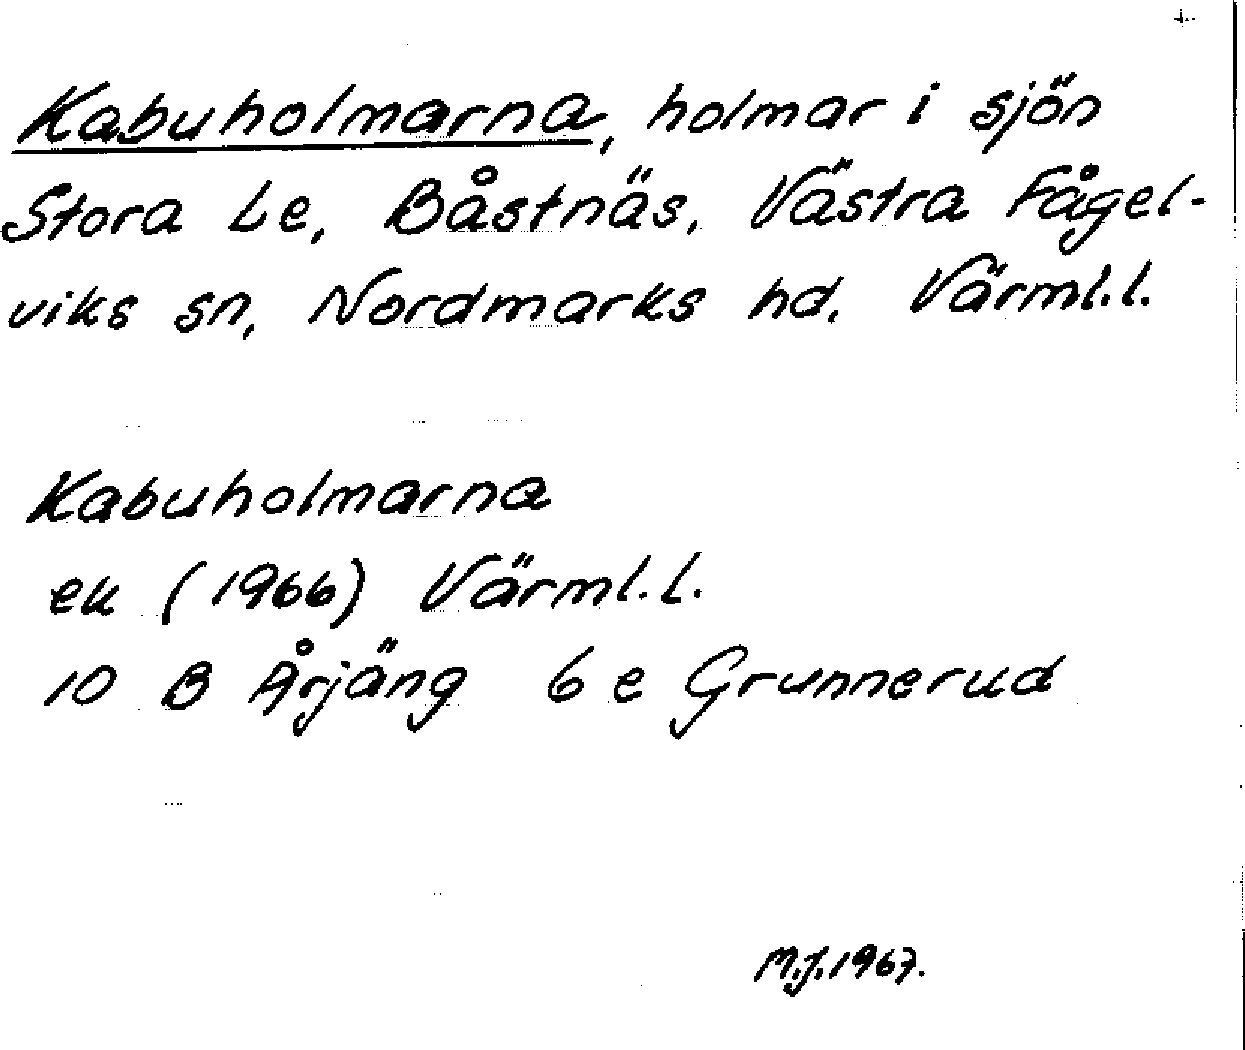 Kabuholmarna, holmar i sjön
Stora Le, Båstnäs, Västra Fågel-
viks sn, Nordmarks hd, Värml.l.
Kabuholmarna
ek (1966) Värml.l.
10 B Årjäng 6 e Grunnerud
M.J.1967.